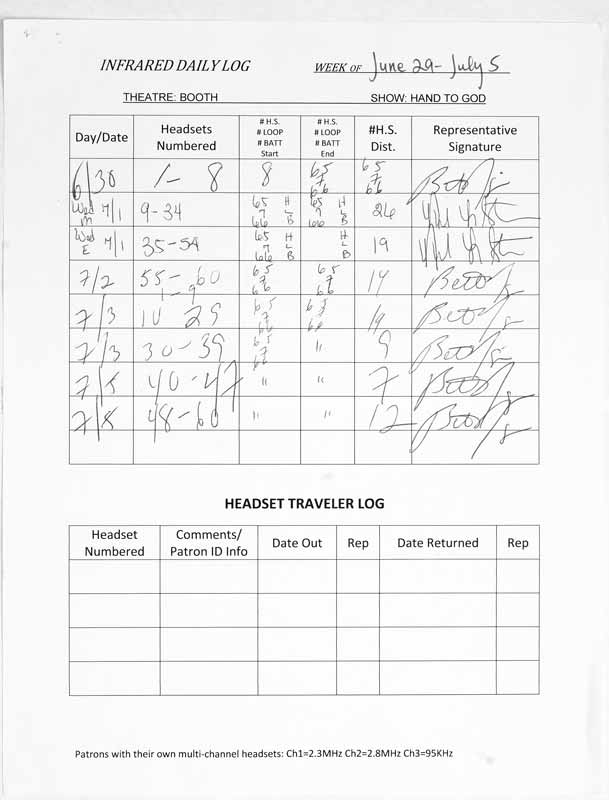 INFRARED DAILY LOG WEEK OF June 29- July 5
THEATRE: BOOTH SHOW: HAND TO GOD
Day/Date Headsets Numbered # H.S. # LOOP # BATT Start # H.S. # LOOP # BATT End #H.S. Dist. Representative Signature
6/30 1- 8 8 65 7 66 65 7 66
Wed M 7/1 9-34 65 H 7 L 66 B 65 H 7 L 66 B 26
Wed E 7/1 35-54 65 H 7 L 66 B H L B 19
7/2 55-60 1-9 65 7 66 65 7 66 14
7/3 10 29 65 7 66 65 7 66 19
7/3 30-39 65 7 66 " 9
7/5 40-47 " " 7
7/5 48-60 " " 12
HEADSET TRAVELER LOG
Headset Numbered Comments/ Patron ID Info Date Out Rep Date Returned Rep
Patrons with their own multi-channel headsets: Ch1=2.3MHz Ch2=2.8MHz Ch3=95KHz